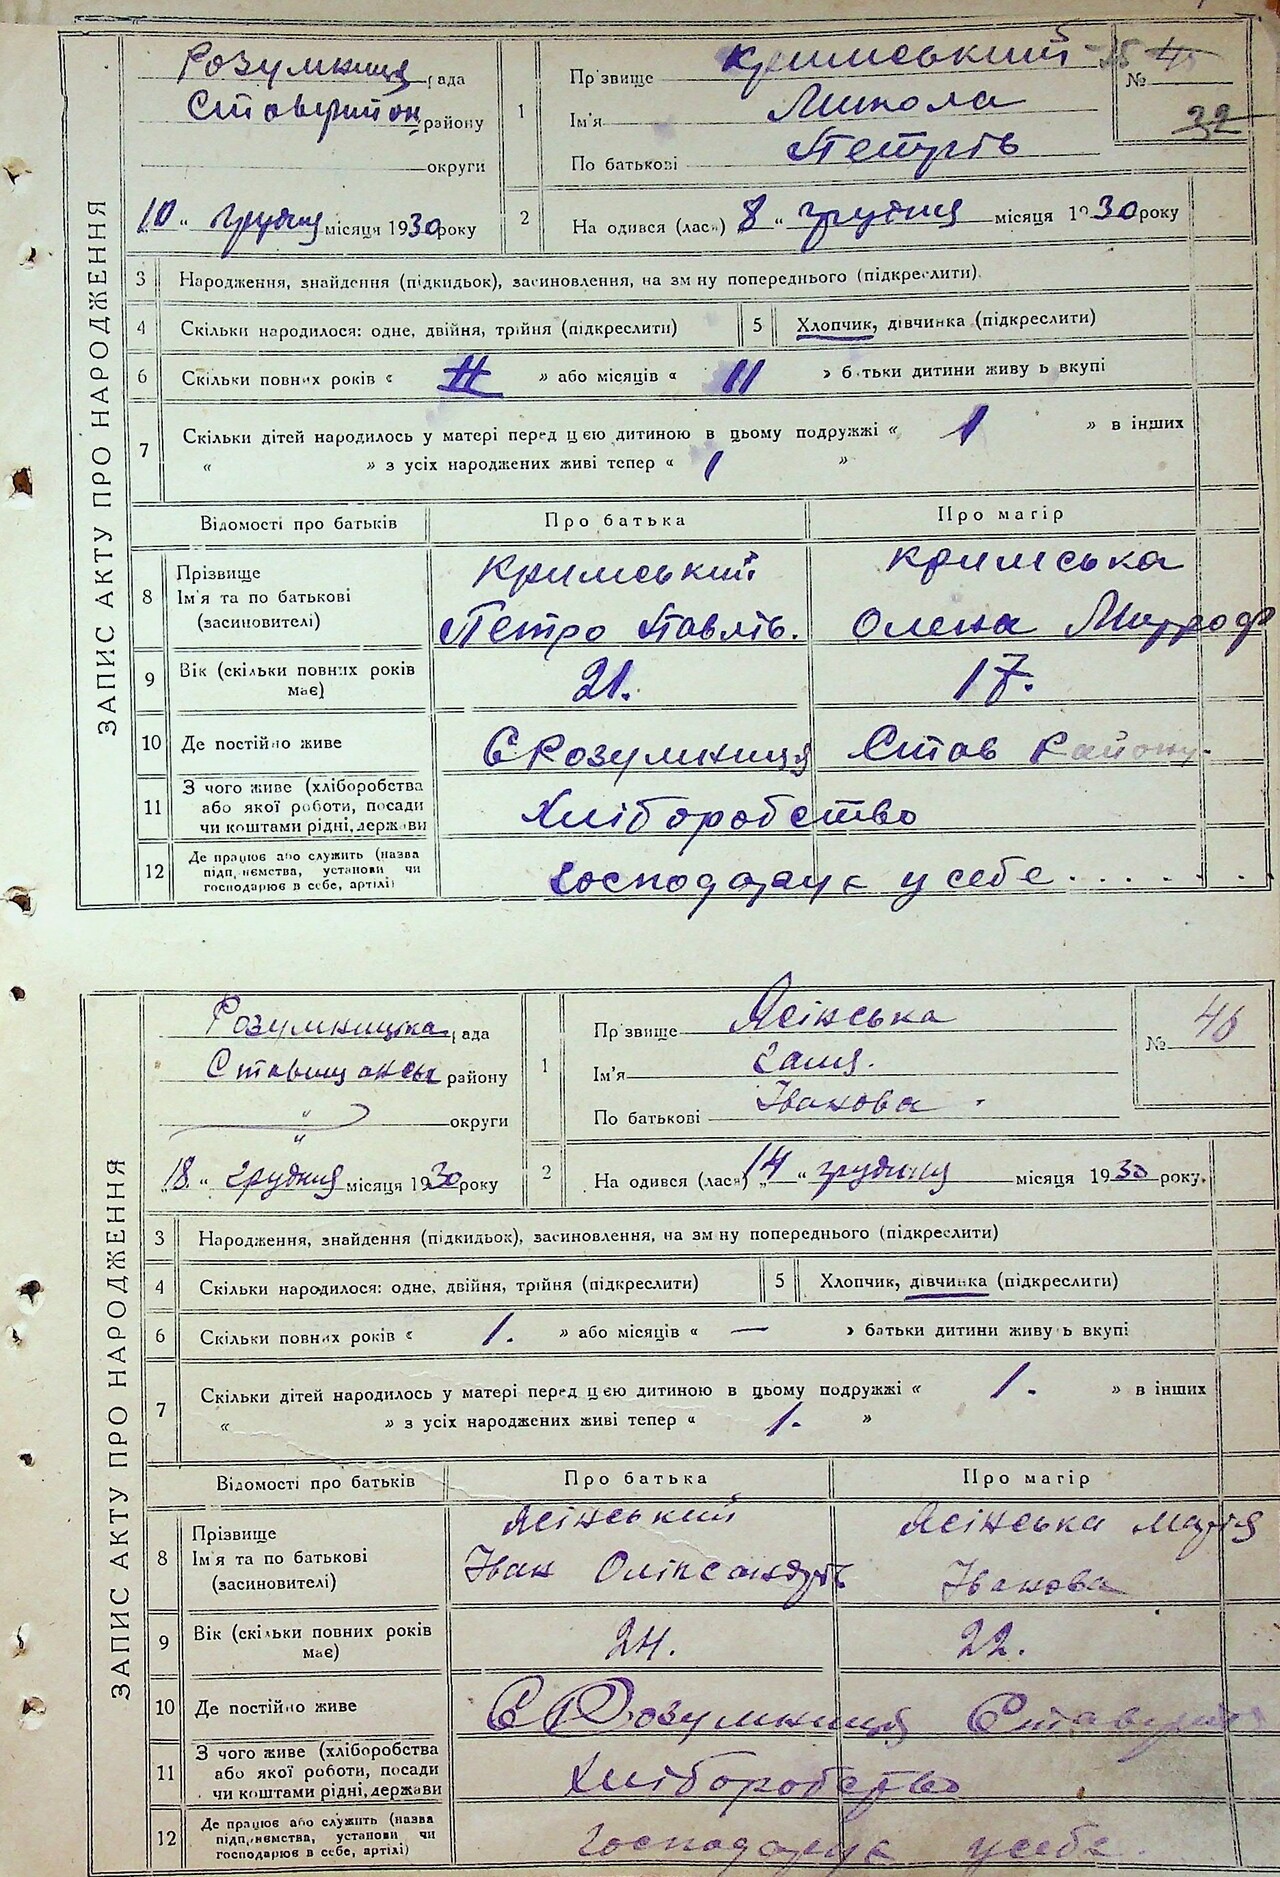 ЗАПИС АКТУ ПРО НАРОДЖЕННЯ
Розумниця рада
району
округи
10 " грудня місяця 1930 року
1 Прізвище Кримський
Ім'я Микола
По батькові Петрів
№ 45
32
2 Народився (лась) 8 " грудня місяця 1930 року
3 Народження, знайдення (підкидьок), засиновлення, на зміну попереднього (підкреслити)
4 Скільки народилося: одне, двійня, трійня (підкреслити)
5 Хлопчик, дівчинка (підкреслити)
6 Скільки повних років « » або місяців « 11 » батьки дитини живуть вкупі
7 Скільки дітей народилось у матері перед цією дитиною в цьому подружжі « 1 » в інших
« » з усіх народжених живі тепер « 1 »
Відомості про батьків Про батька Про матір
8 Прізвище Ім'я та по батькові (засиновителі)
Кримський Кримська
Петро Павлів. Олена Митроф
9 Вік (скільки повних років має) 21. 17.
10 Де постійно живе С Розумниця Став Району
11 З чого живе (хліборобства або якої роботи, посади чи коштами рідні, держави Хліборобство
12 Де працює або служить (назва підприємства, установи чи господарює в себе, артілі) Господарує у себе
ЗАПИС АКТУ ПРО НАРОДЖЕННЯ
Розумницька рада
району
" округи
"
18 " грудня місяця 1930 року
1 Прізвище Ясінська
Ім'я Ганя.
По батькові Іванова
№ 46
2 Народився (лась) 14 " грудня місяця 1930 року.
3 Народження, знайдення (підкидьок), засиновлення, на зміну попереднього (підкреслити)
4 Скільки народилося: одне, двійня, трійня (підкреслити)
5 Хлопчик, дівчинка (підкреслити)
6 Скільки повних років « 1. » або місяців « — » батьки дитини живуть вкупі
7 Скільки дітей народилось у матері перед цією дитиною в цьому подружжі « 1. » в інших
« » з усіх народжених живі тепер « 1. »
Відомості про батьків Про батька Про матір
8 Прізвище Ім'я та по батькові (засиновителі)
Ясінський Ясінська Марія
Іван Оліксандрів Іванова
9 Вік (скільки повних років має) 24. 22.
10 Де постійно живе С Розумниця
11 З чого живе (хліборобства або якої роботи, посади чи коштами рідні, держави Хліборобство
12 Де працює або служить (назва підприємства, установи чи господарює в себе, артілі) Господарує у себе.